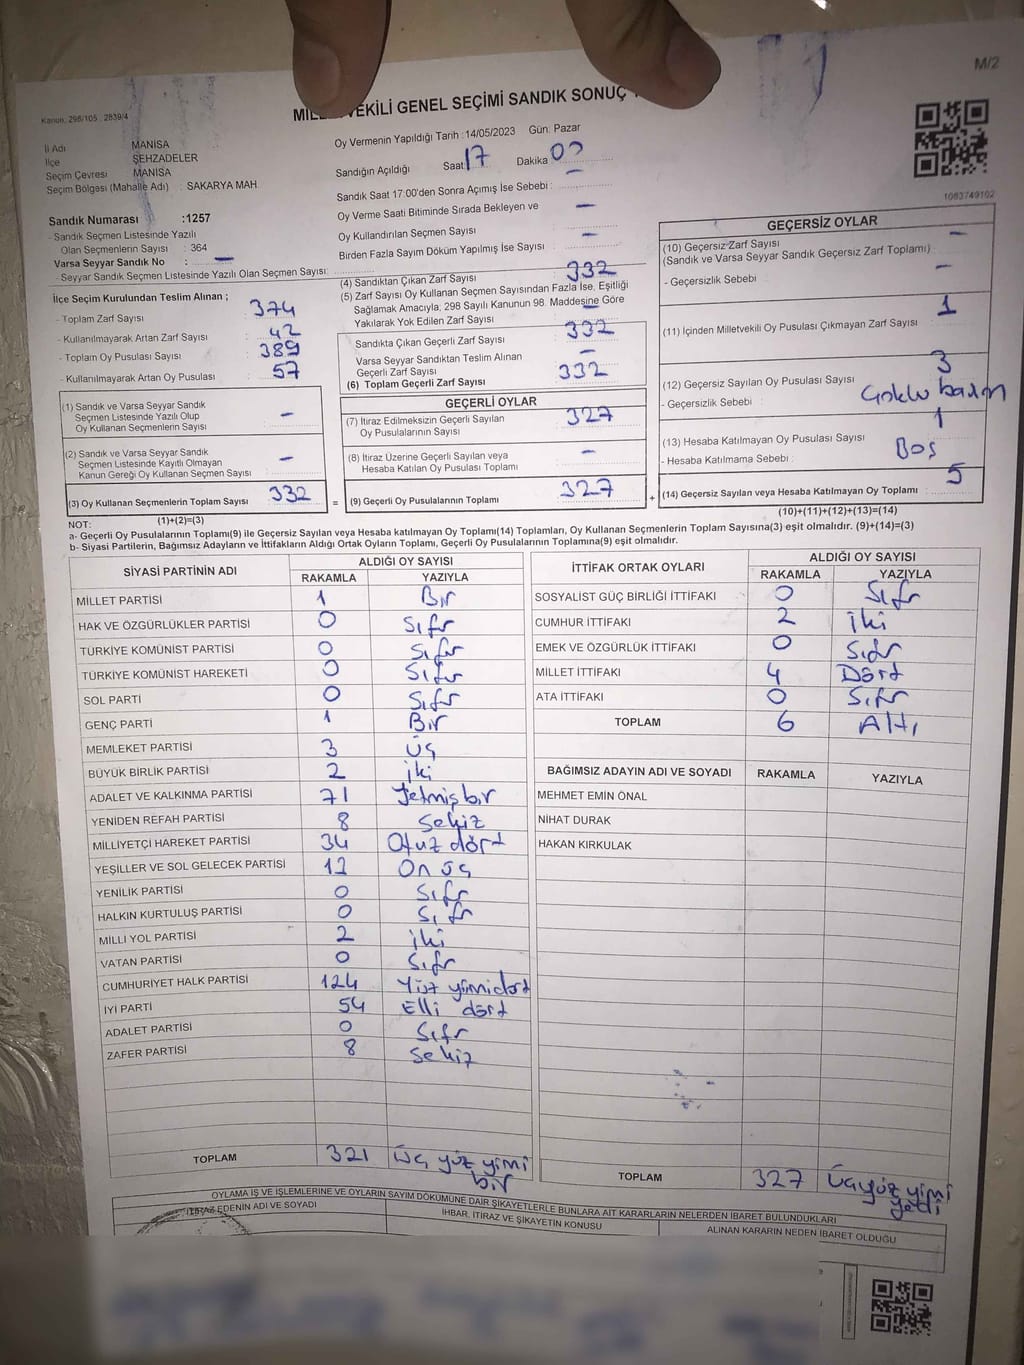 M/2
MİLLETVEKİLİ GENEL SEÇİMİ SANDIK SONUÇ
Kanun, 298/105, 2839/4
İl Adı MANİSA
İlçe ŞEHZADELER
Seçim Çevresi MANİSA
Seçim Bölgesi (Mahalle Adı) : SAKARYA MAH.
Sandık Numarası :1257
- Sandık Seçmen Listesinde Yazılı
Olan Seçmenlerin Sayısı : 364
Varsa Seyyar Sandık No : –
- Seyyar Sandık Seçmen Listesinde Yazılı Olan Seçmen Sayısı:
Oy Vermenin Yapıldığı Tarih :14/05/2023 Gün: Pazar
Sandığın Açıldığı Saat 17 Dakika 00
Sandık Saat 17:00'den Sonra Açımış İse Sebebi : –
Oy Verme Saati Bitiminde Sırada Bekleyen ve –
Oy Kullandırılan Seçmen Sayısı –
Birden Fazla Sayım Döküm Yapılmış İse Sayısı –
1083749102
İlçe Seçim Kurulundan Teslim Alınan ;
- Toplam Zarf Sayısı 374
- Kullanılmayarak Artan Zarf Sayısı 42
- Toplam Oy Pusulası Sayısı 389
- Kullanılmayarak Artan Oy Pusulası 57
(1) Sandık ve Varsa Seyyar Sandık
Seçmen Listesinde Yazılı Olup
Oy Kullanan Seçmenlerin Sayısı –
(2) Sandık ve Varsa Seyyar Sandık
Seçmen Listesinde Kayıtlı Olmayan
Kanun Gereği Oy Kullanan Seçmen Sayısı –
(3) Oy Kullanan Seçmenlerin Toplam Sayısı 332
(1)+(2)=(3)
(4) Sandıktan Çıkan Zarf Sayısı 332
(5) Zarf Sayısı Oy Kullanan Seçmen Sayısından Fazla İse, Eşitliği
Sağlamak Amacıyla, 298 Sayılı Kanunun 98. Maddesine Göre
Yakılarak Yok Edilen Zarf Sayısı –
Sandıkta Çıkan Geçerli Zarf Sayısı 332
Varsa Seyyar Sandıktan Teslim Alınan
Geçerli Zarf Sayısı –
(6) Toplam Geçerli Zarf Sayısı 332
GEÇERLİ OYLAR
(7) İtiraz Edilmeksizin Geçerli Sayılan
Oy Pusulalarının Sayısı 327
(8) İtiraz Üzerine Geçerli Sayılan veya
Hesaba Katılan Oy Pusulası Toplamı –
= (9) Geçerli Oy Pusulalarının Toplamı 327
GEÇERSİZ OYLAR
(10) Geçersiz Zarf Sayısı –
(Sandık ve Varsa Seyyar Sandık Geçersiz Zarf Toplamı)
- Geçersizlik Sebebi –
(11) İçinden Milletvekili Oy Pusulası Çıkmayan Zarf Sayısı 1
(12) Geçersiz Sayılan Oy Pusulası Sayısı 3
- Geçersizlik Sebebi : Çoklu basım
(13) Hesaba Katılmayan Oy Pusulası Sayısı 1
- Hesaba Katılmama Sebebi : Boş
+ (14) Geçersiz Sayılan veya Hesaba Katılmayan Oy Pusulası Toplamı 5
(10)+(11)+(12)+(13)=(14)
NOT:
a- Geçerli Oy Pusulalarının Toplamı(9) ile Geçersiz Sayılan veya Hesaba katılmayan Oy Toplamı(14) Toplamları, Oy Kullanan Seçmenlerin Toplam Sayısına(3) eşit olmalıdır. (9)+(14)=(3)
b- Siyasi Partilerin, Bağımsız Adayların ve İttifakların Aldığı Ortak Oyların Toplamı, Geçerli Oy Pusulalarının Toplamına(9) eşit olmalıdır.
SİYASİ PARTİNİN ADI ALDIĞI OY SAYISI
RAKAMLA YAZIYLA
MİLLET PARTİSİ 1 Bir
HAK VE ÖZGÜRLÜKLER PARTİSİ 0 Sıfır
TÜRKİYE KOMÜNİST PARTİSİ 0 Sıfır
TÜRKİYE KOMÜNİST HAREKETİ 0 Sıfır
SOL PARTİ 0 Sıfır
GENÇ PARTİ 1 Bir
MEMLEKET PARTİSİ 3 Üç
BÜYÜK BİRLİK PARTİSİ 2 İki
ADALET VE KALKINMA PARTİSİ 71 Yetmişbir
YENİDEN REFAH PARTİSİ 8 Sekiz
MİLLİYETÇİ HAREKET PARTİSİ 34 Otuz dört
YEŞİLLER VE SOL GELECEK PARTİSİ 13 On üç
YENİLİK PARTİSİ 0 Sıfır
HALKIN KURTULUŞ PARTİSİ 0 Sıfır
MİLLİ YOL PARTİSİ 2 İki
VATAN PARTİSİ 0 Sıfır
CUMHURİYET HALK PARTİSİ 124 Yüz yirmidört
İYİ PARTİ 54 Elli dört
ADALET PARTİSİ 0 Sıfır
ZAFER PARTİSİ 8 Sekiz
TOPLAM 321 Üç yüz yirmi
bir
İTTİFAK ORTAK OYLARI ALDIĞI OY SAYISI
RAKAMLA YAZIYLA
SOSYALİST GÜÇ BİRLİĞİ İTTİFAKI 0 Sıfır
CUMHUR İTTİFAKI 2 İki
EMEK VE ÖZGÜRLÜK İTTİFAKI 0 Sıfır
MİLLET İTTİFAKI 4 Dört
ATA İTTİFAKI 0 Sıfır
TOPLAM 6 Altı
BAĞIMSIZ ADAYIN ADI VE SOYADI RAKAMLA YAZIYLA
MEHMET EMİN ÖNAL
NİHAT DURAK
HAKAN KIRKULAK
TOPLAM 327 Üçyüz yirmi
yedi
OYLAMA İŞ VE İŞLEMLERİNE VE OYLARIN SAYIM DÖKÜMÜNE DAİR ŞİKAYETLERLE BUNLARA AİT KARARLARIN NELERDEN İBARET BULUNDUKLARI
İTİRAZ EDENİN ADI VE SOYADI
İHBAR, İTİRAZ VE ŞİKAYETİN KONUSU
ALINAN KARARIN NEDEN İBARET OLDUĞU